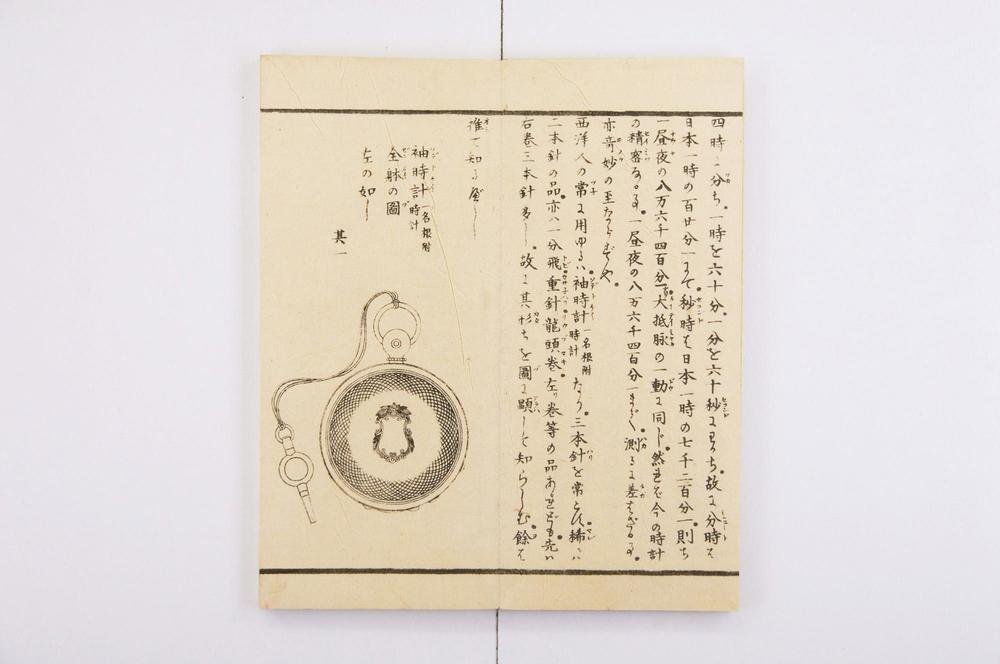 四時に分ち。一時を六十分。一分を六十秒にわかち。故に分時は
日本一時の百廿分一にて。秒時は日本一時の七千二百分一則ち
一昼夜の八万六千四百分一大抵脉の一動に同じ。然れば今の時計
の精密なる。一昼夜の八万六千四百分一まで測るに差はざる。
亦奇妙の至ならずや。
西洋人の常に用ゆるハ。袖時計一名根附時計たり。三本針を常とし。稀にハ
二本針の品。亦ハ一分飛重針龍頭巻。左り巻等の品あれども。先ハ
右巻三本針多し。故に其形ちを圖に顕して知らしむ。餘は
推て知る歴し
袖時計一名根附時計
全躰の圖
左の如し
其一